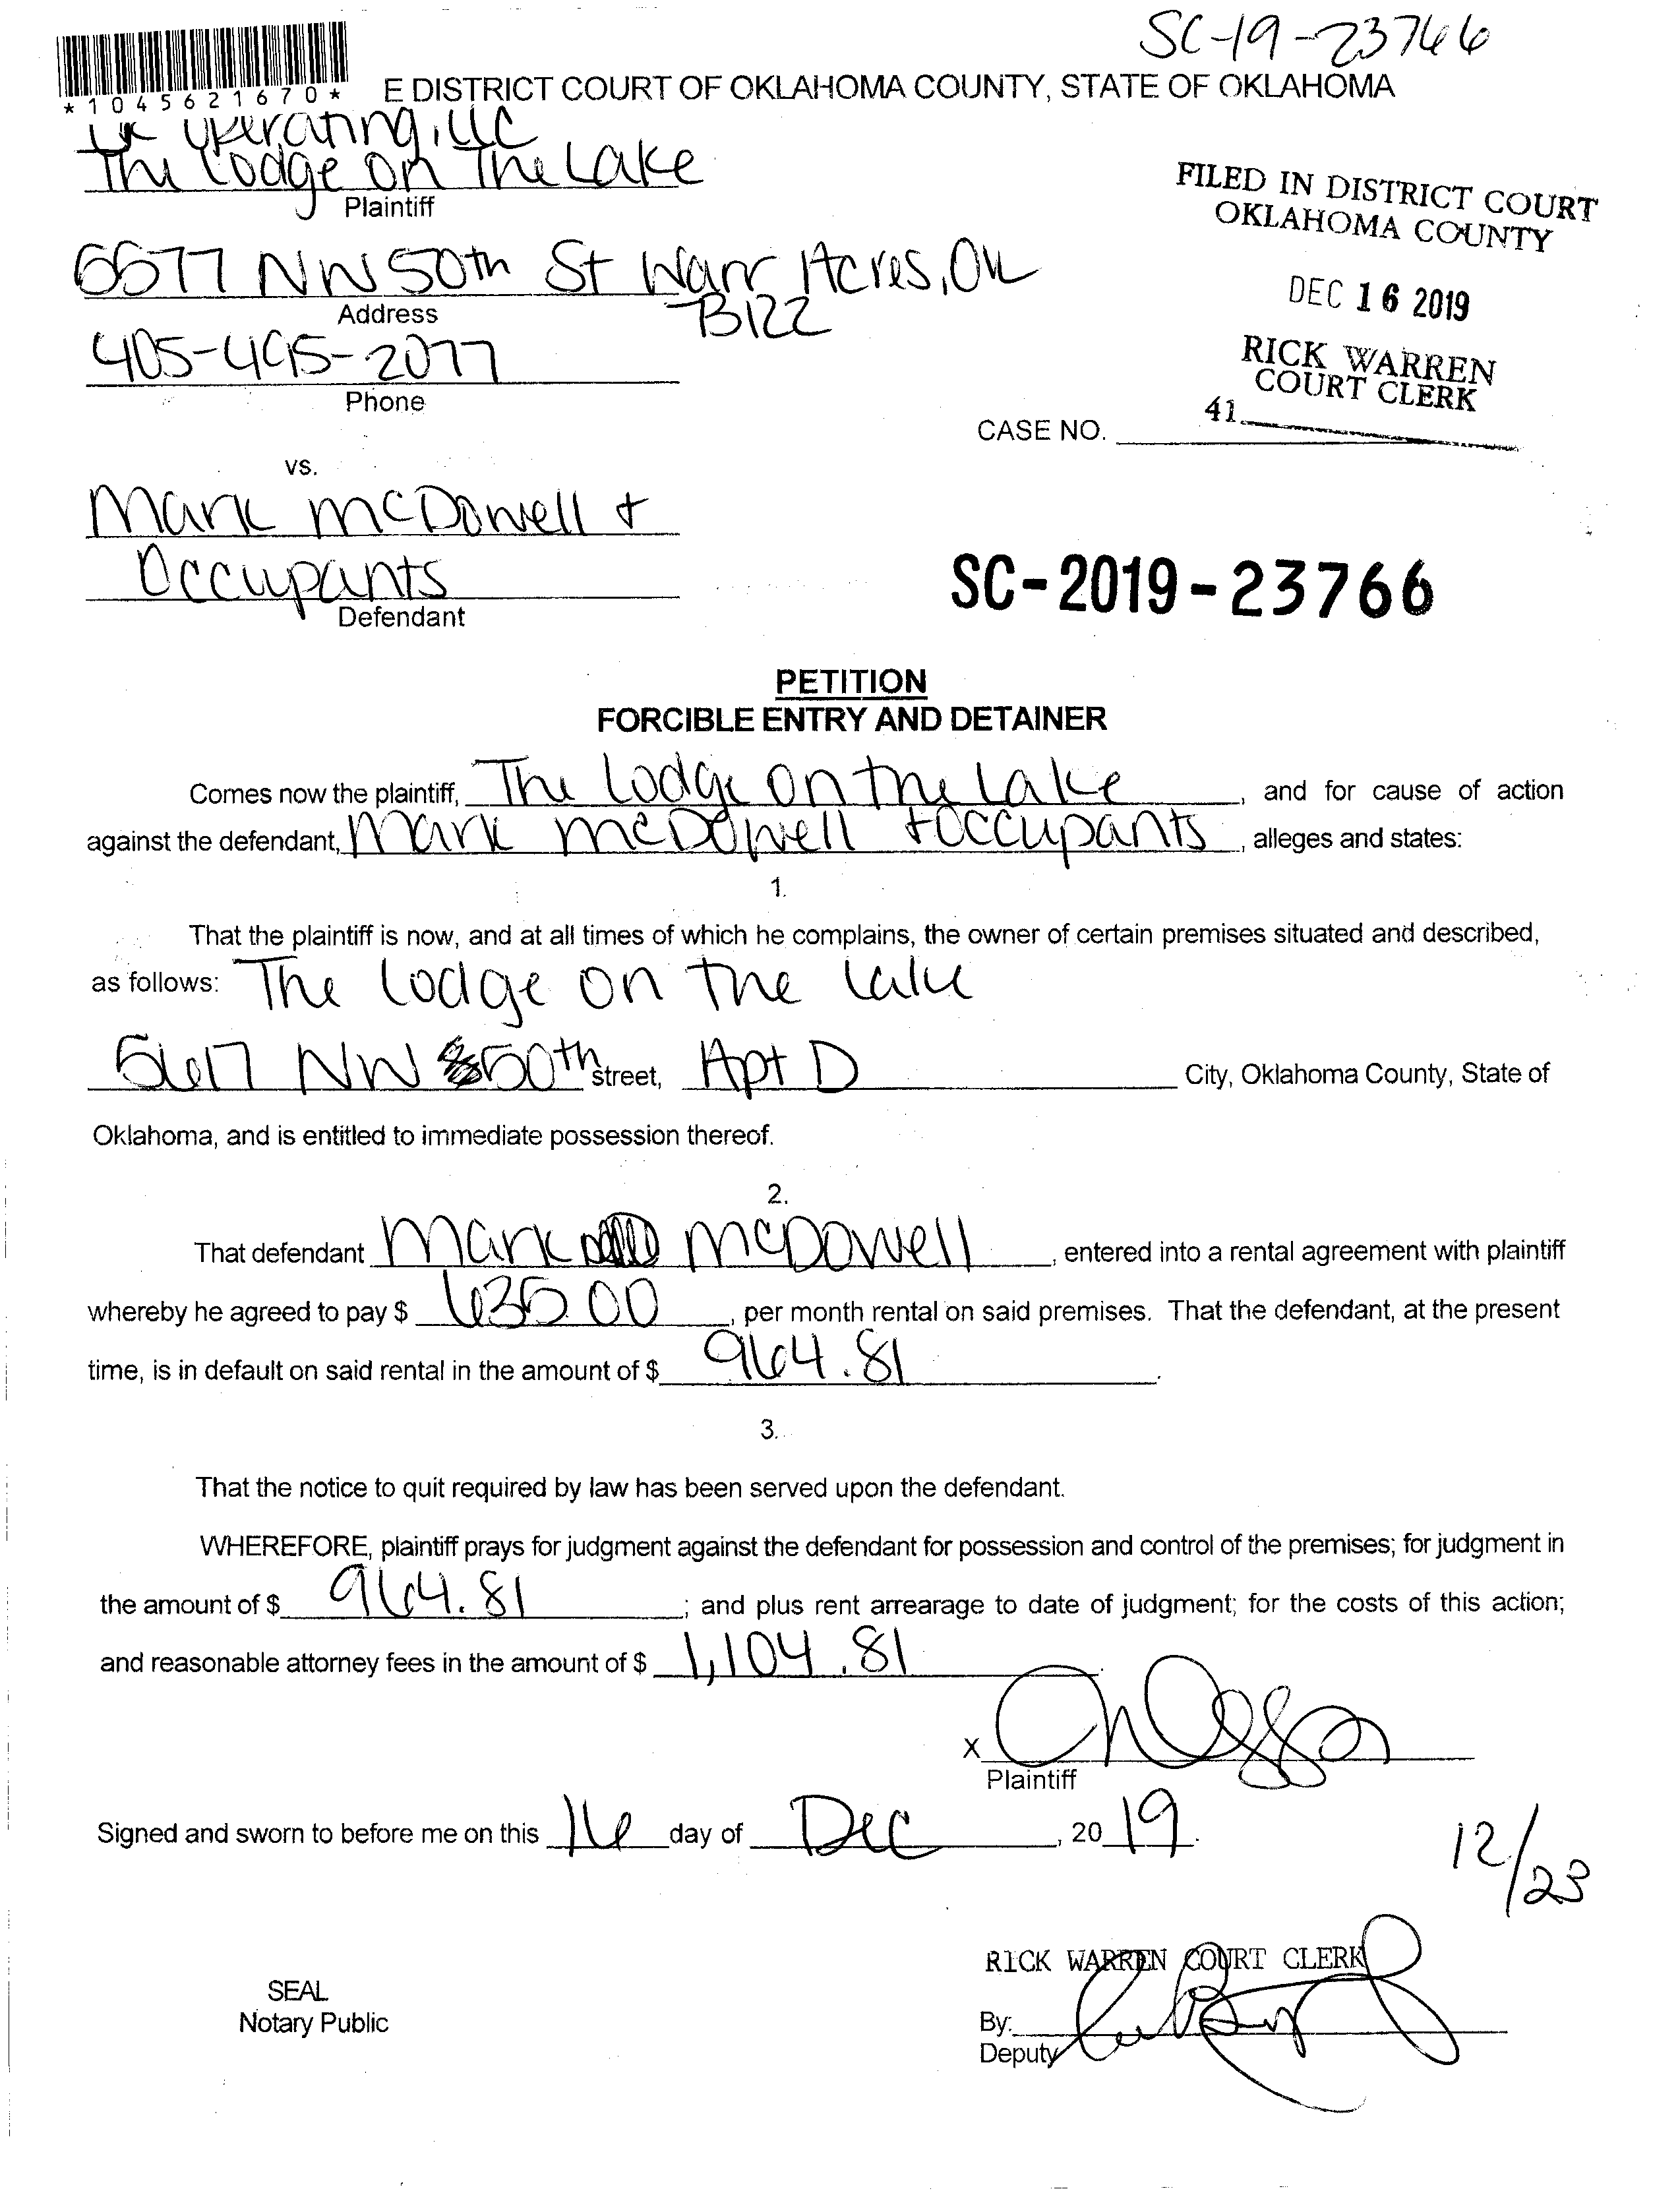 SC-19-23766
*1045621670*
E DISTRICT COURT OF OKLAHOMA COUNTY, STATE OF OKLAHOMA
Operating, LLC
The Lodge on The Lake
Plaintiff
FILED IN DISTRICT COURT
OKLAHOMA COUNTY
DEC 16 2019
RICK WARREN
COURT CLERK
41
NW 50th St Warr Acres, OK
Address
73122
405-495-2077
Phone
CASE NO.
vs.
Mark McDowell +
Occupants
Defendant
SC-2019-23766
PETITION
FORCIBLE ENTRY AND DETAINER
Comes now the plaintiff, The Lodge on the Lake, and for cause of action
against the defendant, Mark McDowell + Occupants, alleges and states:
1.
That the plaintiff is now, and at all times of which he complains, the owner of certain premises situated and described,
as follows: The Lodge on the Lake
5617 NW 50th street, Apt D City, Oklahoma County, State of
Oklahoma, and is entitled to immediate possession thereof.
2.
That defendant Mark McDowell, entered into a rental agreement with plaintiff
whereby he agreed to pay $ 635.00, per month rental on said premises. That the defendant, at the present
time, is in default on said rental in the amount of $ 964.81.
3.
That the notice to quit required by law has been served upon the defendant.
WHEREFORE, plaintiff prays for judgment against the defendant for possession and control of the premises; for judgment in
the amount of $ 964.81; and plus rent arrearage to date of judgment; for the costs of this action;
and reasonable attorney fees in the amount of $ 1,104.81.
X
Plaintiff
Signed and sworn to before me on this 16 day of Dec, 2019.
12/23
RICK WARREN COURT CLERK
SEAL
Notary Public
By:
Deputy